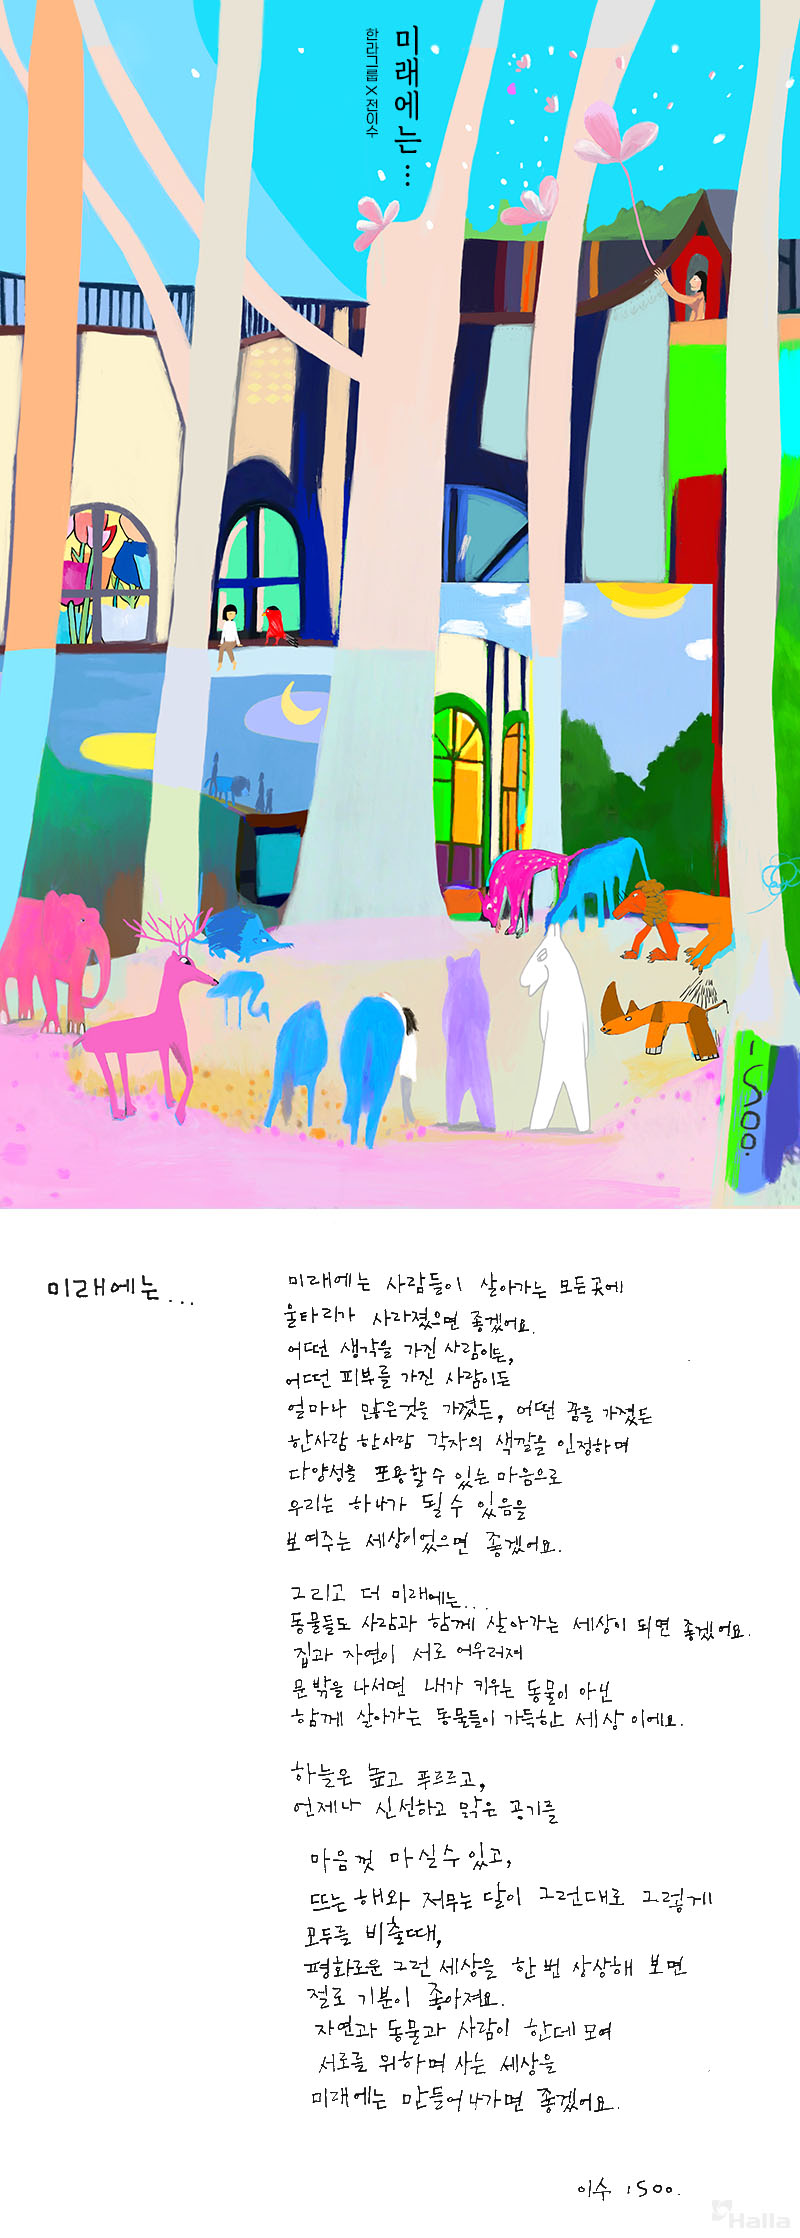 미래에는...
한라그룹 X 전이수
ISOO.
미래에는...
미래에는 사람들이 살아가는 모든곳에
울타리가 사라졌으면 좋겠어요.
어떤 생각을 가진 사람이든,
어떤 피부를 가진 사람이든
얼마나 많은것을 가졌든, 어떤 꿈을 가졌든
한사람 한사람 각자의 색깔을 인정하며
다양성을 포용할수 있는 마음으로
우리는 하나가 될 수 있음을
보여주는 세상이었으면 좋겠어요.
그리고 더 미래에는...
동물들도 사람과 함께 살아가는 세상이 되면 좋겠어요.
집과 자연이 서로 어우러져
문밖을 나서면 내가 키우는 동물이 아닌
함께 살아가는 동물들이 가득한 세상이에요.
하늘은 높고 푸르르고,
언제나 신선하고 맑은 공기를
마음껏 마실수 있고,
뜨는 해와 저무는 달이 그런대로 그렇게
모두를 비출때,
평화로운 그런 세상을 한번 상상해 보면
절로 기분이 좋아져요.
자연과 동물과 사람이 한데 모여
서로를 위하며 사는 세상을
미래에는 만들어나가면 좋겠어요.
이수 ISOO.
Halla